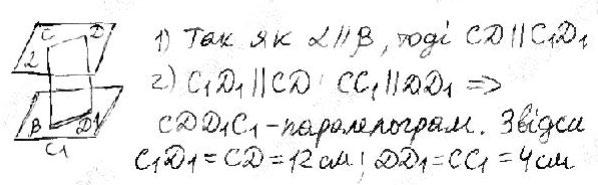 C D
α
β D1
C1
1) Так як α∥β, тоді CD∥C1D1
2) C1D1∥CD; CC1∥DD1 ⇒
CDD1C1-паралелограм. Звідси
C1D1=CD=12 см; DD1=CC1=4 см